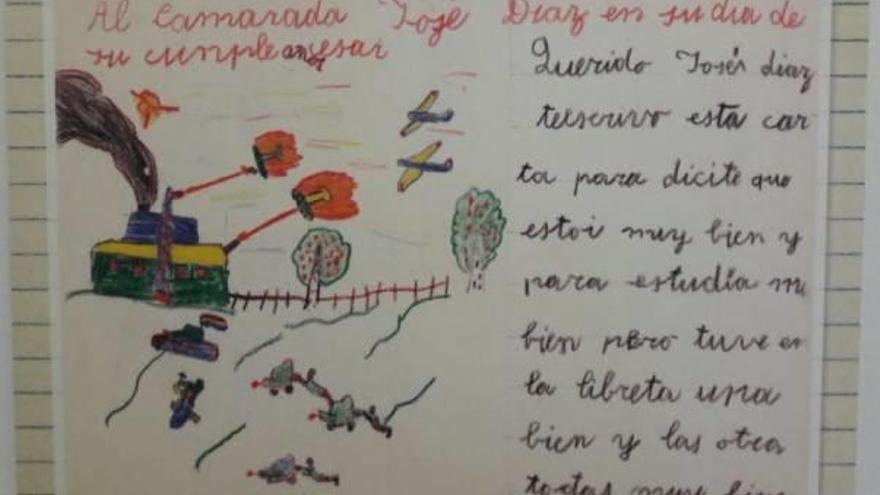 Al Camarada José Diaz en su dia de
su cumpleaños
Querido Josés diaz
teescrivo esta car
ta para dicite que
estoi muy bien y
para estudia m
bien pero tuve en
la libreta una
bien y las otra
todas muy bien